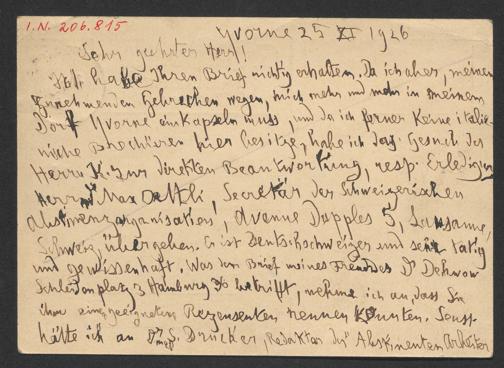 I.N. 206.815
Yvorne 25 XI 1926
Sehr geehrter Herr!
Ich habe Ihren Brief richtig erhalten. Da ich aber, meinen
zunehmenden Gebrechen wegen, mich mehr und mehr in meinem
Dorf Yvorne einkapseln muss, und da ich ferner keine italie-
nische Brochüren hier besitze, habe ich das Gesuch des
Herrn K. zur direkten Beantwortung, resp. Erledigung
Herrn Max Oettli, Secretär der Schweizerischen
Abstinenzorganisation, Avenue Dapples 5, Lausanne,
Schweiz, übergeben. Er ist Deutschschweizer und sehr tätig
und gewissenhaft. Was den Brief meines Freundes Dr Dehnow
Hamburg 36 betrifft, nehme ich an, dass Sie
ihm einen geeigneten Rezensenten nennen könnten. Sonst
hätte ich an Dr S. Drucker, Redaktor des Abstinenten Arbeiter